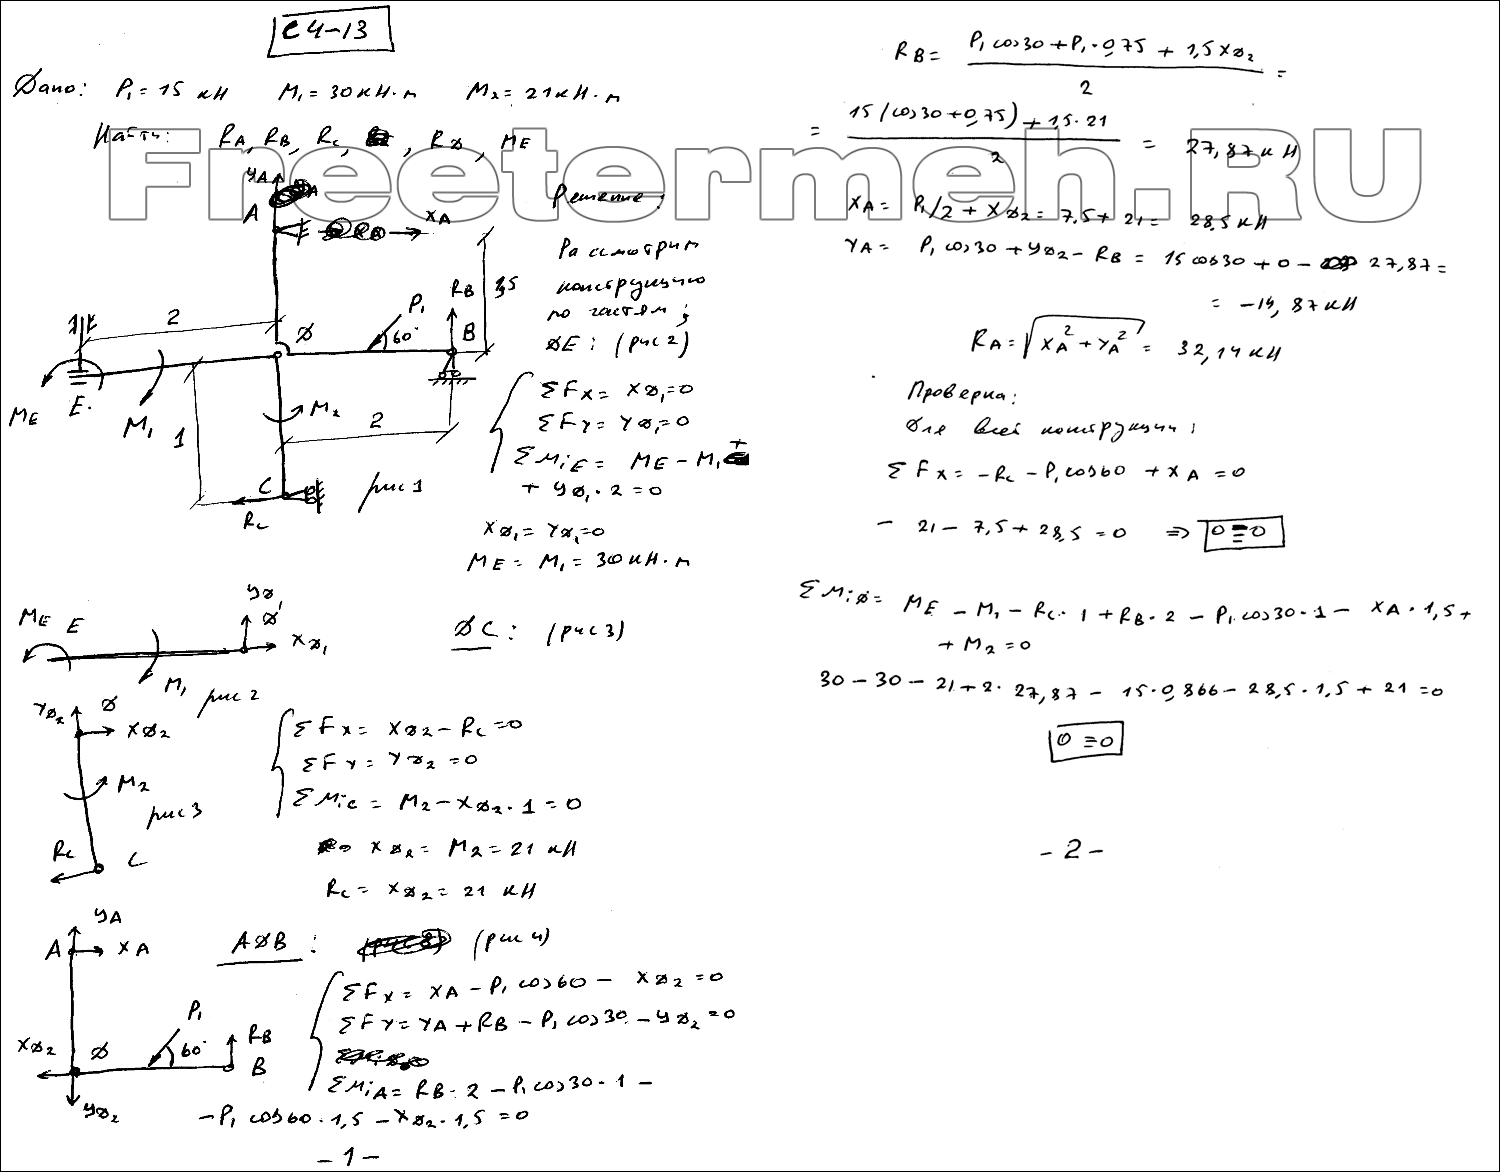 С4-13
Дано: P₁ = 15 кН M₁ = 30 кН·м M₂ = 21 кН·м
Найти: RA, RB, RC, RD, ME
Freetermeh.RU
YA
A
XA
Решение:
Рассмотрим
конструкцию
по частям;
DE: (рис 2)
3,5
RB
P₁
60°
B
2
D
ME
E.
M₁
1
M₂
2
C
RC
рис 1
ΣFx = XD₁ = 0
ΣFY = YD₁ = 0
ΣMiE = ME - M₁ +
+ YD₁·2 = 0
XD₁ = YD₁ = 0
ME = M₁ = 30 кН·м
ME E
YD₁
D
XD₁
M₁ рис 2
DC: (рис 3)
YD₂ D
XD₂
M₂
рис 3
RC C
ΣFx = XD₂ - RC = 0
ΣFY = YD₂ = 0
ΣMiC = M₂ - XD₂·1 = 0
XD₂ = M₂ = 21 кН
RC = XD₂ = 21 кН
YA
A XA
P₁
60°
RB
XD₂ D B
YD₂
ADB: (рис 4)
ΣFx = XA - P₁ cos60 - XD₂ = 0
ΣFY = YA + RB - P₁ cos30 - YD₂ = 0
ΣMiA = RB·2 - P₁ cos30·1 -
- P₁ cos60·1,5 - XD₂·1,5 = 0
-1-
RB = (P₁ cos30 + P₁·0,75 + 1,5XD₂) / 2 =
= (15(cos30 + 0,75) + 1,5·21) / 2 = 27,87 кН
XA = P₁/2 + XD₂ = 7,5 + 21 = 28,5 кН
YA = P₁ cos30 + YD₂ - RB = 15 cos30 + 0 - 27,87 =
= -14,87 кН
RA = √(XA² + YA²) = 32,14 кН
Проверка:
Для всей конструкции:
ΣFx = -RC - P₁cos60 + XA = 0
- 21 - 7,5 + 28,5 = 0 ⇒ 0 ≡ 0
ΣMiD = ME - M₁ - RC·1 + RB·2 - P₁cos30·1 - XA·1,5 +
+ M₂ = 0
30 - 30 - 21 + 2·27,87 - 15·0,866 - 28,5·1,5 + 21 = 0
0 ≡ 0
-2-